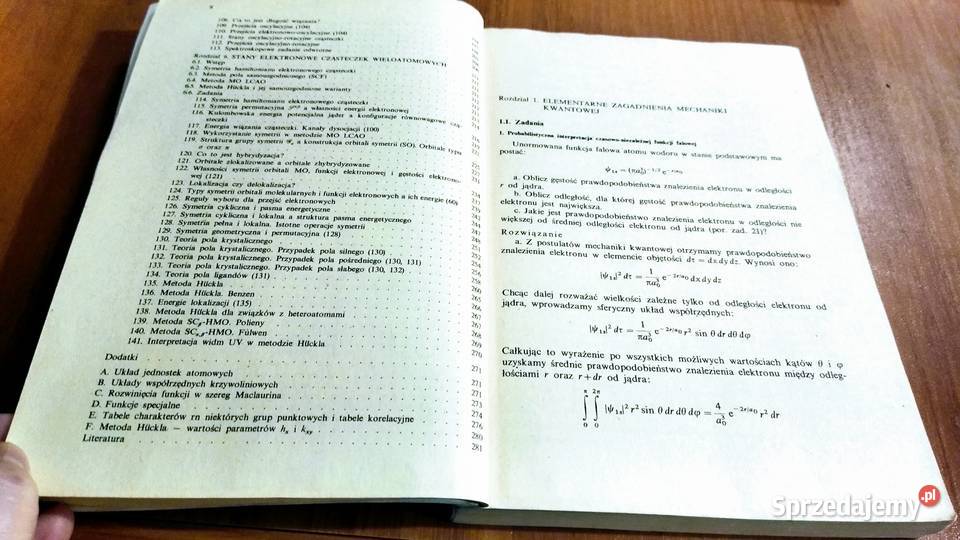 108. Co to jest długość wiązania?
109. Przejścia oscylacyjne (104)
110. Przejścia elektronowo-oscylacyjne (104)
111. Stany oscylacyjno-rotacyjne cząsteczki
112. Przejścia oscylacyjno-rotacyjne
113. Spektroskopowe zadanie odwrotne
Rozdział 6. STANY ELEKTRONOWE CZĄSTECZEK WIELOATOMOWYCH
6.1. Wstęp
6.2. Symetria hamiltonianu elektronowego cząsteczki
6.3. Metoda pola samouzgodnionego (SCF)
6.4. Metoda MO LCAO
6.5. Metoda Hückla i jej samouzgodnione warianty
6.6. Zadania
114. Symetria hamiltonianu elektronowego cząsteczki
115. Symetria permutacyjna a własności energii elektronowej
116. Kulombowska energia potencjalna jąder a konfiguracje równowagowe czą-
steczki
117. Energia wiązania cząsteczki. Kanały dysocjacji (100)
118. Wykorzystanie symetrii w metodzie MO LCAO
119. Struktura grupy symetrii a konstrukcja orbitali symetrii (SO). Orbitale typu
σ oraz π
120. Co to jest hybrydyzacja?
121. Orbitale zlokalizowane a orbitale zhybrydyzowane
122. Własności symetrii orbitali MO, funkcji elektronowej i gęstości elektrono-
wej (121)
123. Lokalizacja czy delokalizacja?
124. Typy symetrii orbitali molekularnych i funkcji elektronowych a ich energie (60)
125. Reguły wyboru dla przejść elektronowych
126. Symetria cykliczna i pasma energetyczne
127. Symetria cykliczna i lokalna a struktura pasma energetycznego
128. Symetria pełna i lokalna. Istotne operacje symetrii
129. Symetria geometryczna i permutacyjna (128)
130. Teoria pola krystalicznego
131. Teoria pola krystalicznego. Przypadek pola silnego (130)
132. Teoria pola krystalicznego. Przypadek pola pośredniego (130, 131)
133. Teoria pola krystalicznego. Przypadek pola słabego (130, 132)
134. Teoria pola ligandów (131)
135. Metoda Hückla
136. Metoda Hückla. Benzen
137. Energie lokalizacji (135)
138. Metoda Hückla dla związków z heteroatomami
139. Metoda SCβ-HMO. Polieny
140. Metoda HMO. Fulwen
141. Interpretacja widm UV w metodzie Hückla 270
Dodatki 271
A. Układ jednostek atomowych 271
B. Układy współrzędnych krzywoliniowych 271
C. Rozwinięcia funkcji w szereg Maclaurina 273
D. Funkcje specjalne 274
E. Tabele charakterów nn niektórych grup punktowych i tabele korelacyjne 276
F. Metoda Hückla — wartości parametrów hₓ i kₓᵧ 280
Literatura 281
Rozdział 1. ELEMENTARNE ZAGADNIENIA MECHANIKI
KWANTOWEJ
1.1. Zadania
1. Probabilistyczna interpretacja czasowo-niezależnej funkcji falowej
Unormowana funkcja falowa atomu wodoru w stanie podstawowym ma
postać:
ψ₁ₛ = (πa₀³)^−1/2 e^−r/a₀
a. Oblicz gęstość prawdopodobieństwa znalezienia elektronu w odległości
r od jądra.
b. Oblicz odległość, dla której gęstość prawdopodobieństwa znalezienia
elektronu jest największa.
c. Jakie jest prawdopodobieństwo znalezienia elektronu w odległości nie
większej od średniej odległości elektronu od jądra (por. zad. 21)?
Rozwiązanie
a. Z postulatów mechaniki kwantowej otrzymamy prawdopodobieństwo
znalezienia elektronu w elemencie objętości dτ = dx dy dz. Wynosi ono:
|ψ₁ₛ|² dτ = 1/(πa₀³) e^−2r/a₀ dx dy dz
Chcąc dalej rozważać wielkości zależne tylko od odległości elektronu od
jądra, wprowadzamy sferyczny układ współrzędnych:
|ψ₁ₛ|² dτ = 1/(πa₀³) e^−2r/a₀ r² sin θ dr dθ dφ
Całkując to wyrażenie po wszystkich możliwych wartościach kątów θ i φ
uzyskamy średnie prawdopodobieństwo znalezienia elektronu między odleg-
łościami r oraz r + dr od jądra:
∫₀^π ∫₀^2π |ψ₁ₛ|² r² sin θ dr dθ dφ = 4/a₀³ e^−2r/a₀ r² dr
Sprzedajemy.pl